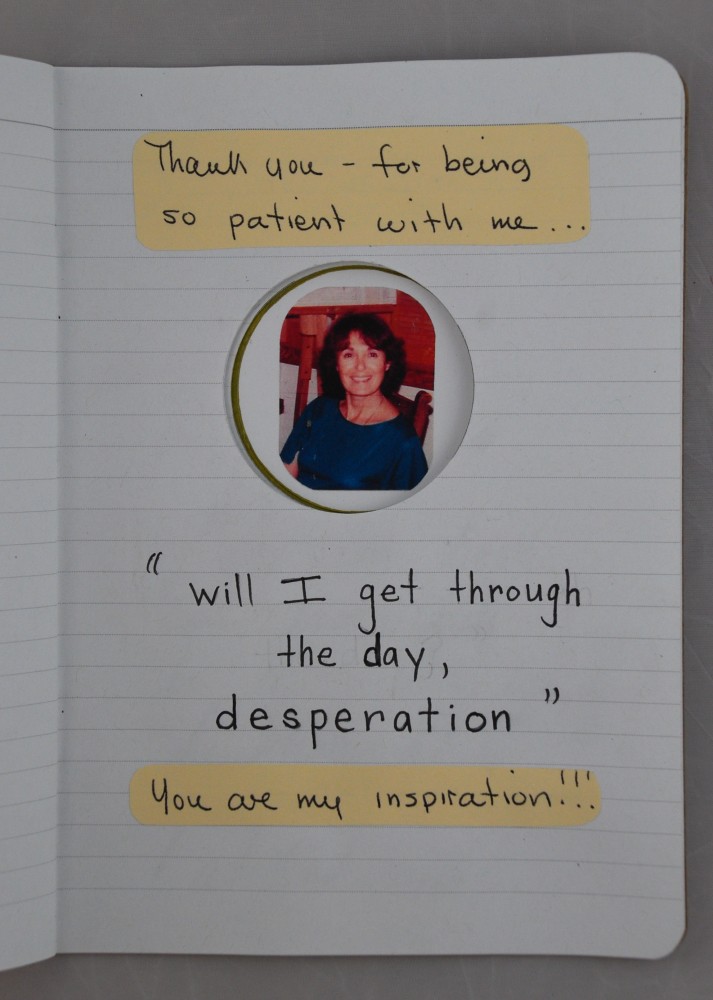 Thank you - for being
so patient with me...
"will I get through
the day,
desperation"
You are my inspiration!!!